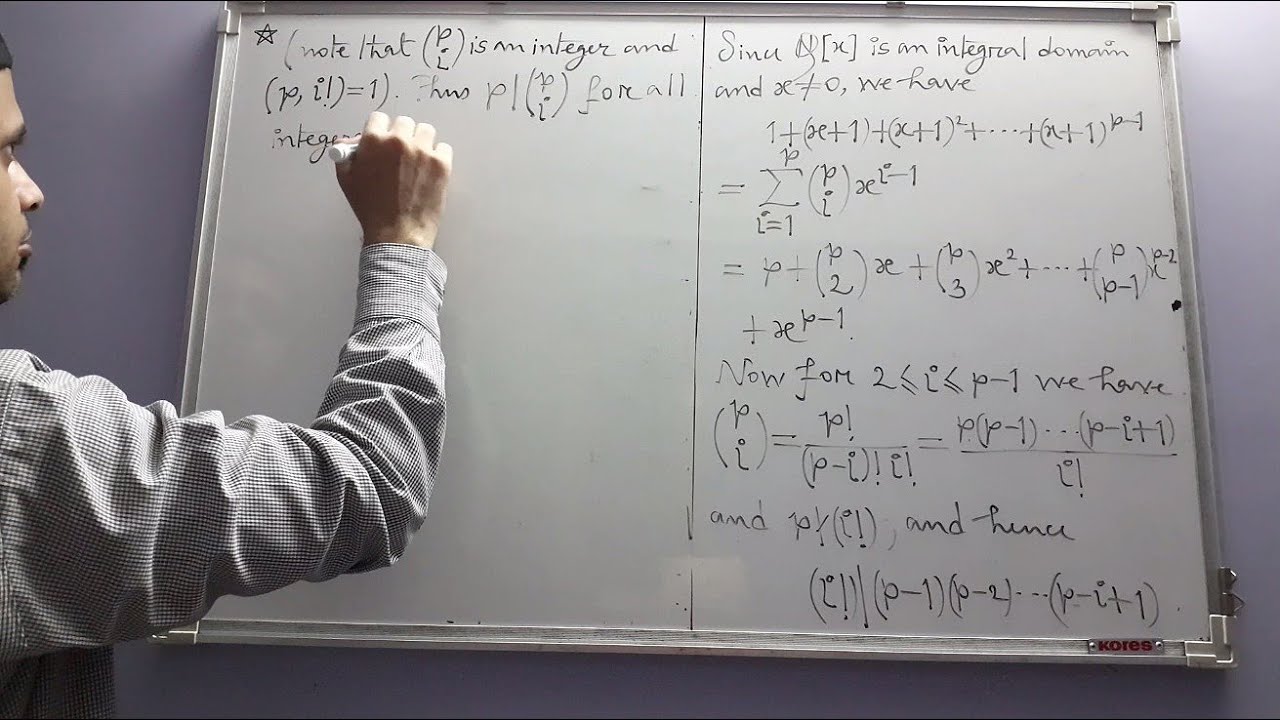 ☆ (note that (p i) is an integer and
(p, i!)=1). Thus p|(p i) for all
integer
Since [x] is an integral domain
and x≠0, we have
1+(x+1)+(x+1)²+⋯+(x+1)^{p-1}
= ∑_{i=1}^{p} (p i) x^{i-1}
= p+(p 2)x+(p 3)x²+⋯+(p p-1)x^{p-2}
+x^{p-1}.
Now for 2⩽i⩽p-1 we have
(p i) = p!/((p-i)! i!) = p(p-1)⋯(p-i+1)/i!
and p∤(i!), and hence
(i!)|(p-1)(p-2)⋯(p-i+1)
KORES